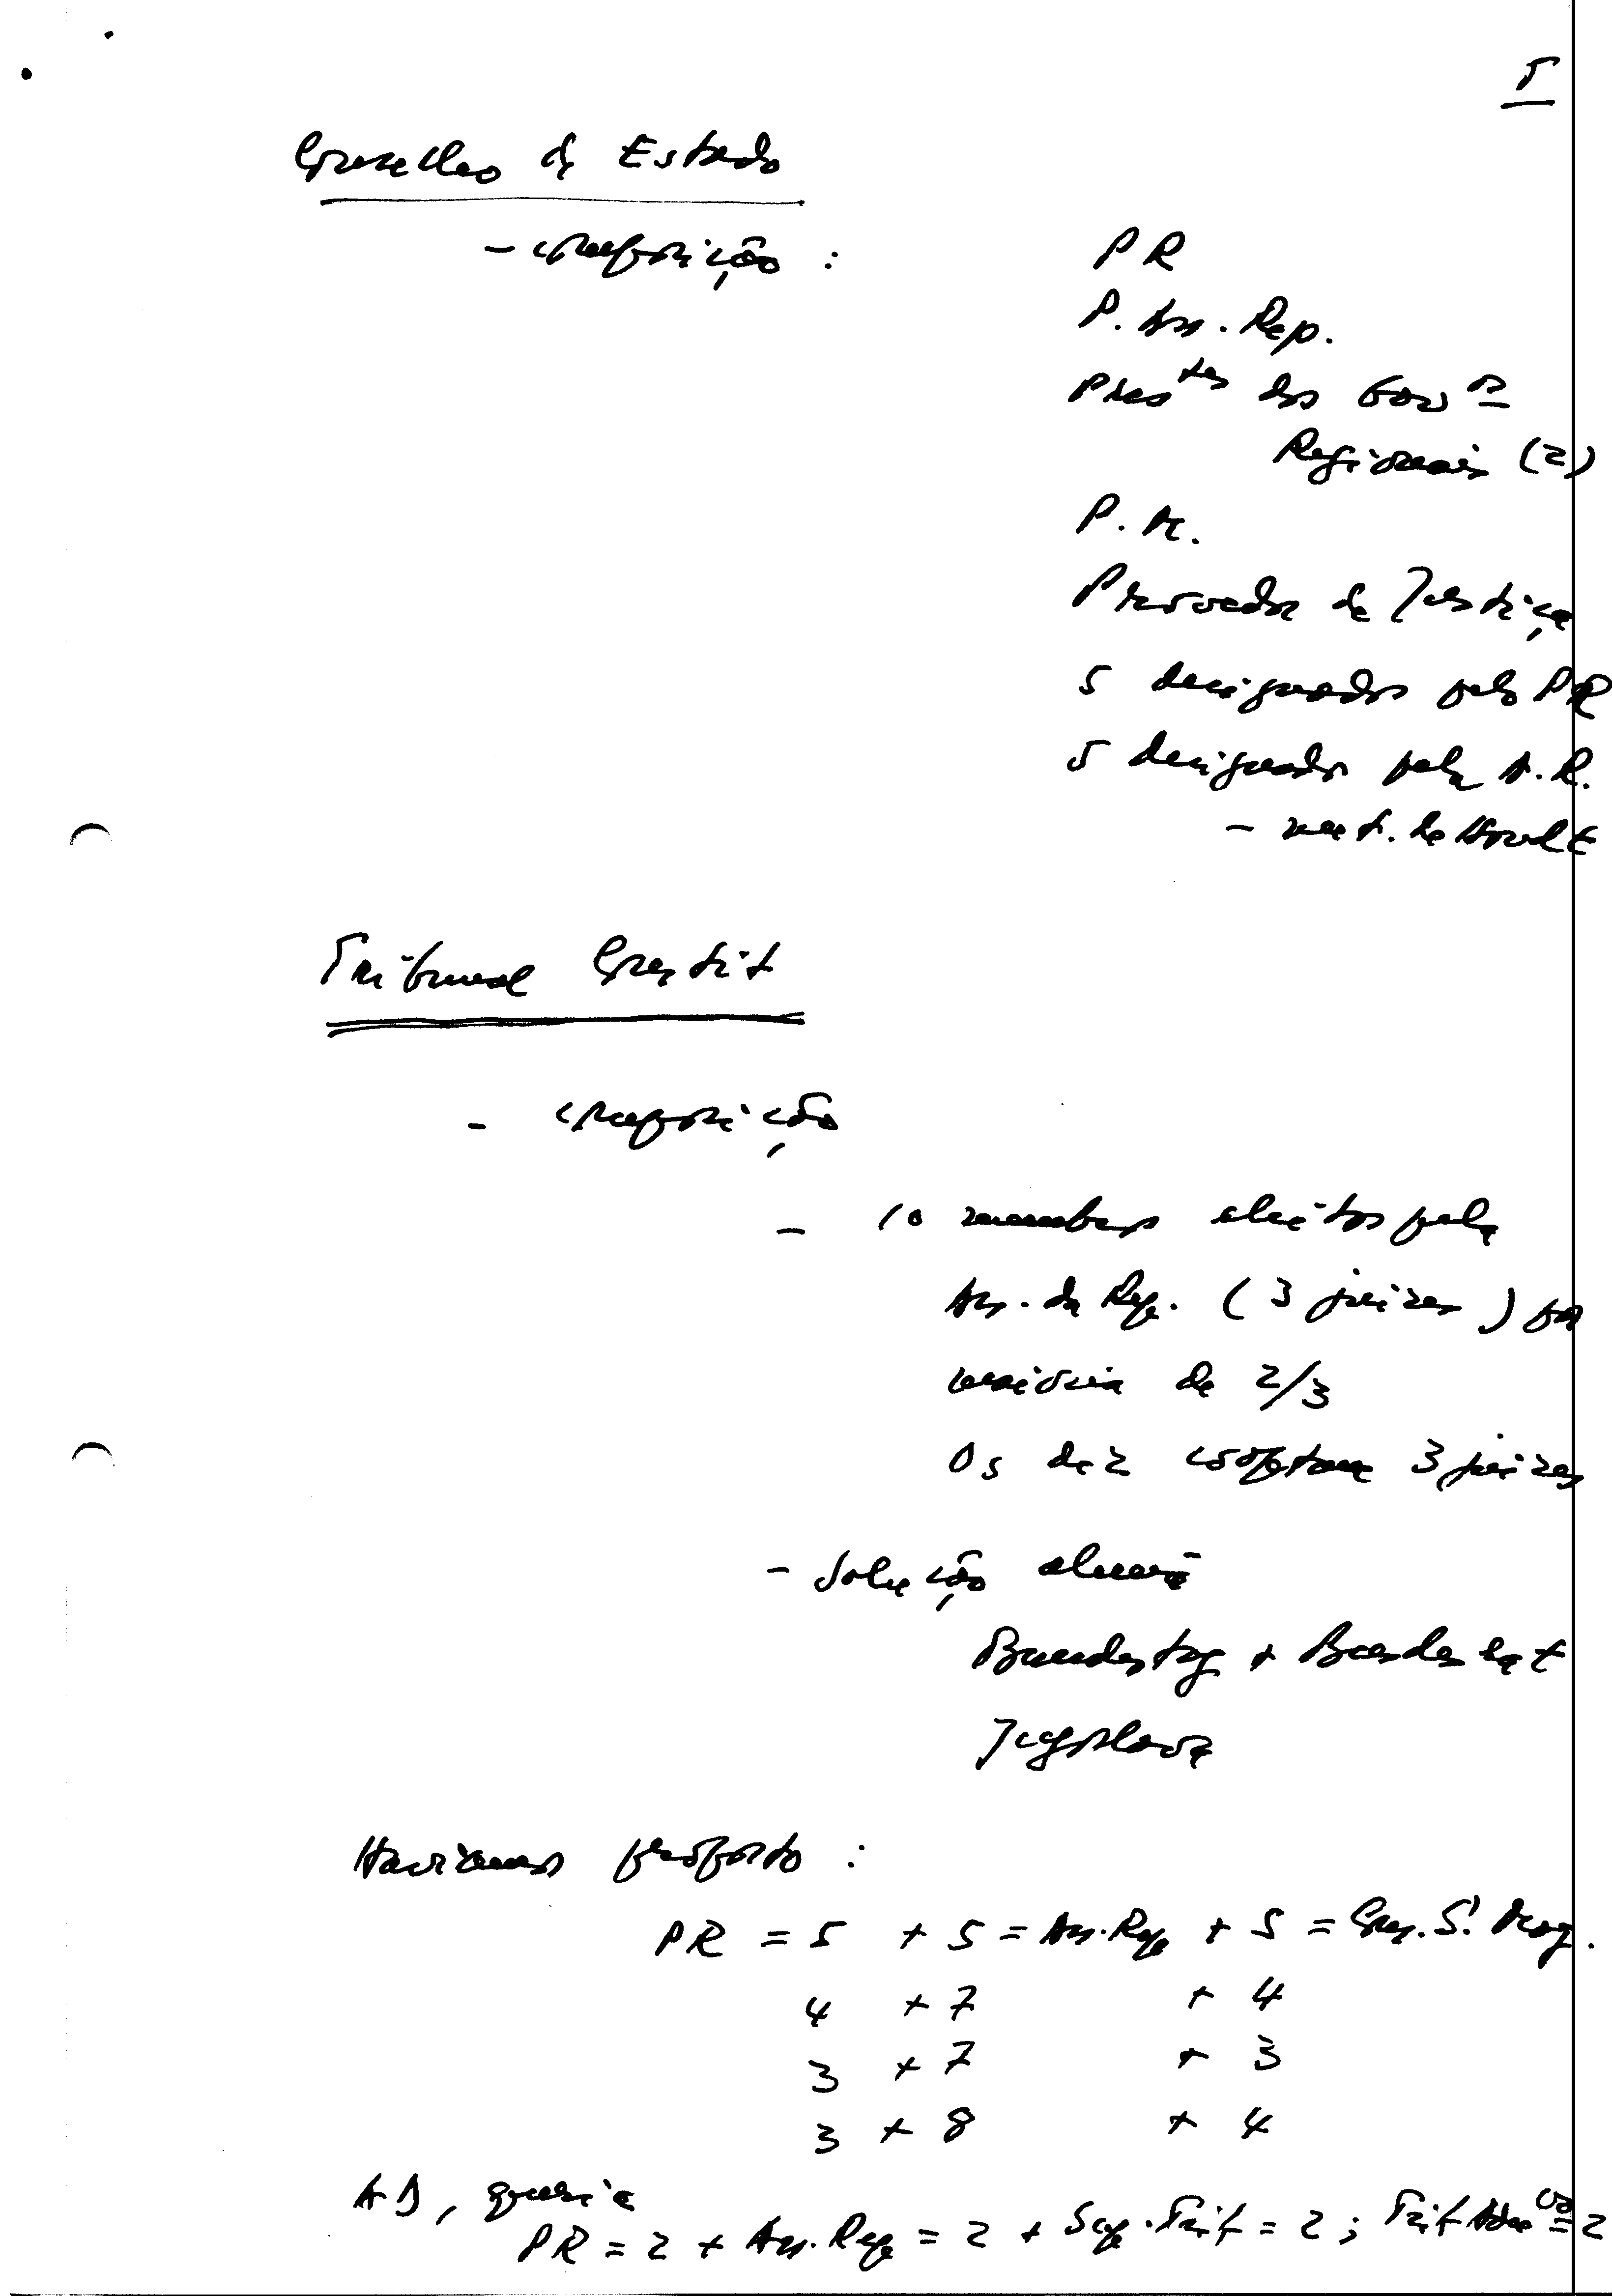 5
Conselho de Estado
- composição :
PR
P. Ass. Rep.
Pres tes dos Gov os
Regionais (2)
P. M.
Provedor de Justiça
5 designados pelo PR
5 designados pela A.R.
- mét. de Hondt
Tribunal Constit
- composição
- 10 membros eleitos pela
Ass. da Rep. (3 juizes) por
maioria de 2/3
Os dez cooptam 3 juizes
- Solução alemã
Bundestag + Bundesrat
Jugoslava
Haviamos proposto :
PR = 5 + 5 = Ass. Rep + 5 = Cons. S. Mag.
4 + 7 + 4
3 + 7 + 3
3 + 8 + 4
AD, queria
PR = 2 + Ass. Rep = 2 + Sup. Trib = 2 ; Trib Adm = 2